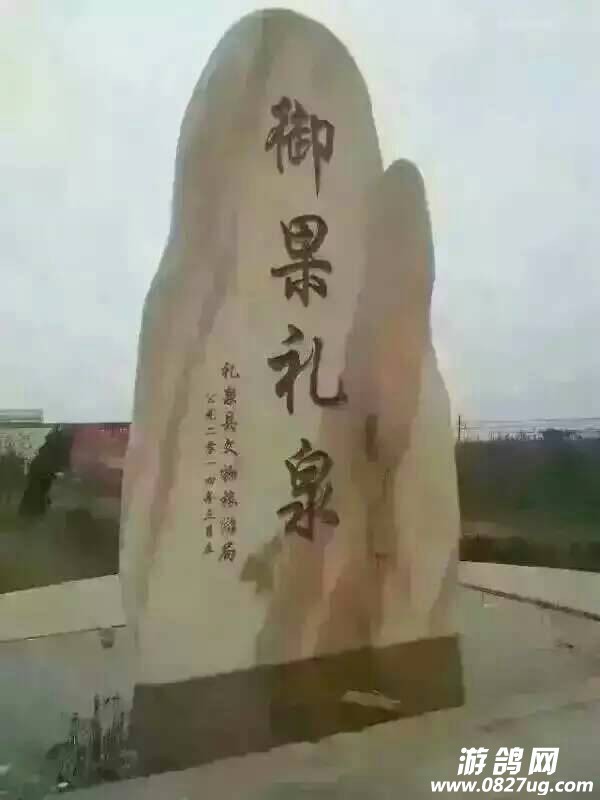 御果礼泉
礼泉县文物旅游局
公元二零一四年三月立
游鸽网
www.0827ug.com